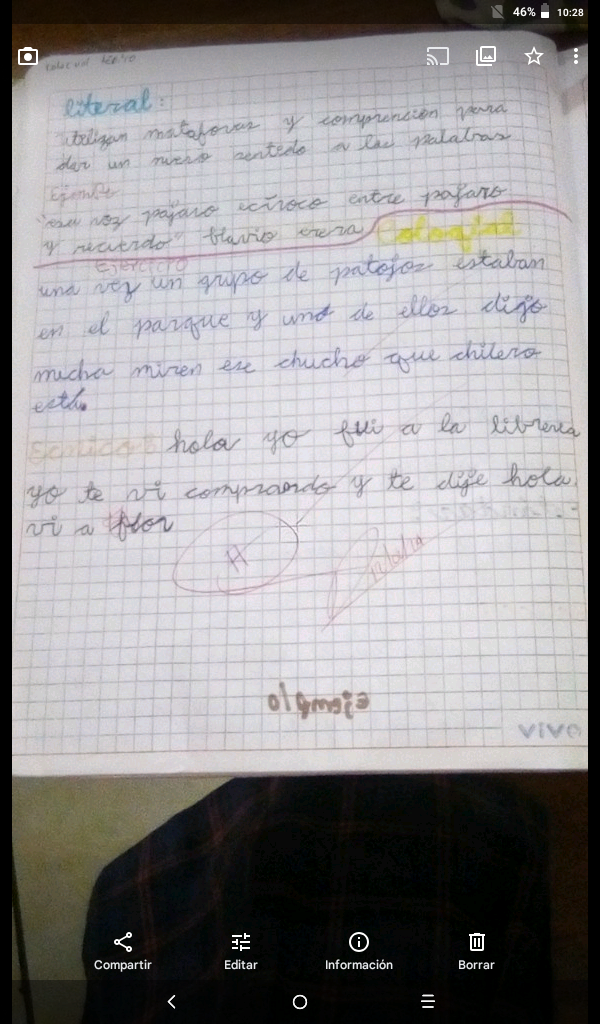 46% 10:28
literal:
utilizan mataforas y comprención para
dar un nuevo sentido a las palabras
Ejemplo
"esa voz pájaro ecíroco entre pájaro
y recuerdo" flavio erera Coloqial
Ejercicio
una vez un grupo de patojos estaban
en el parque y uno de ellos dijo
mucha miren ese chucho que chilero
está.
hola yo fui a la libreria
yo te vi comprando y te dije hola
vi a flor
H
Ejemplo
vivo
Compartir Editar Información Borrar